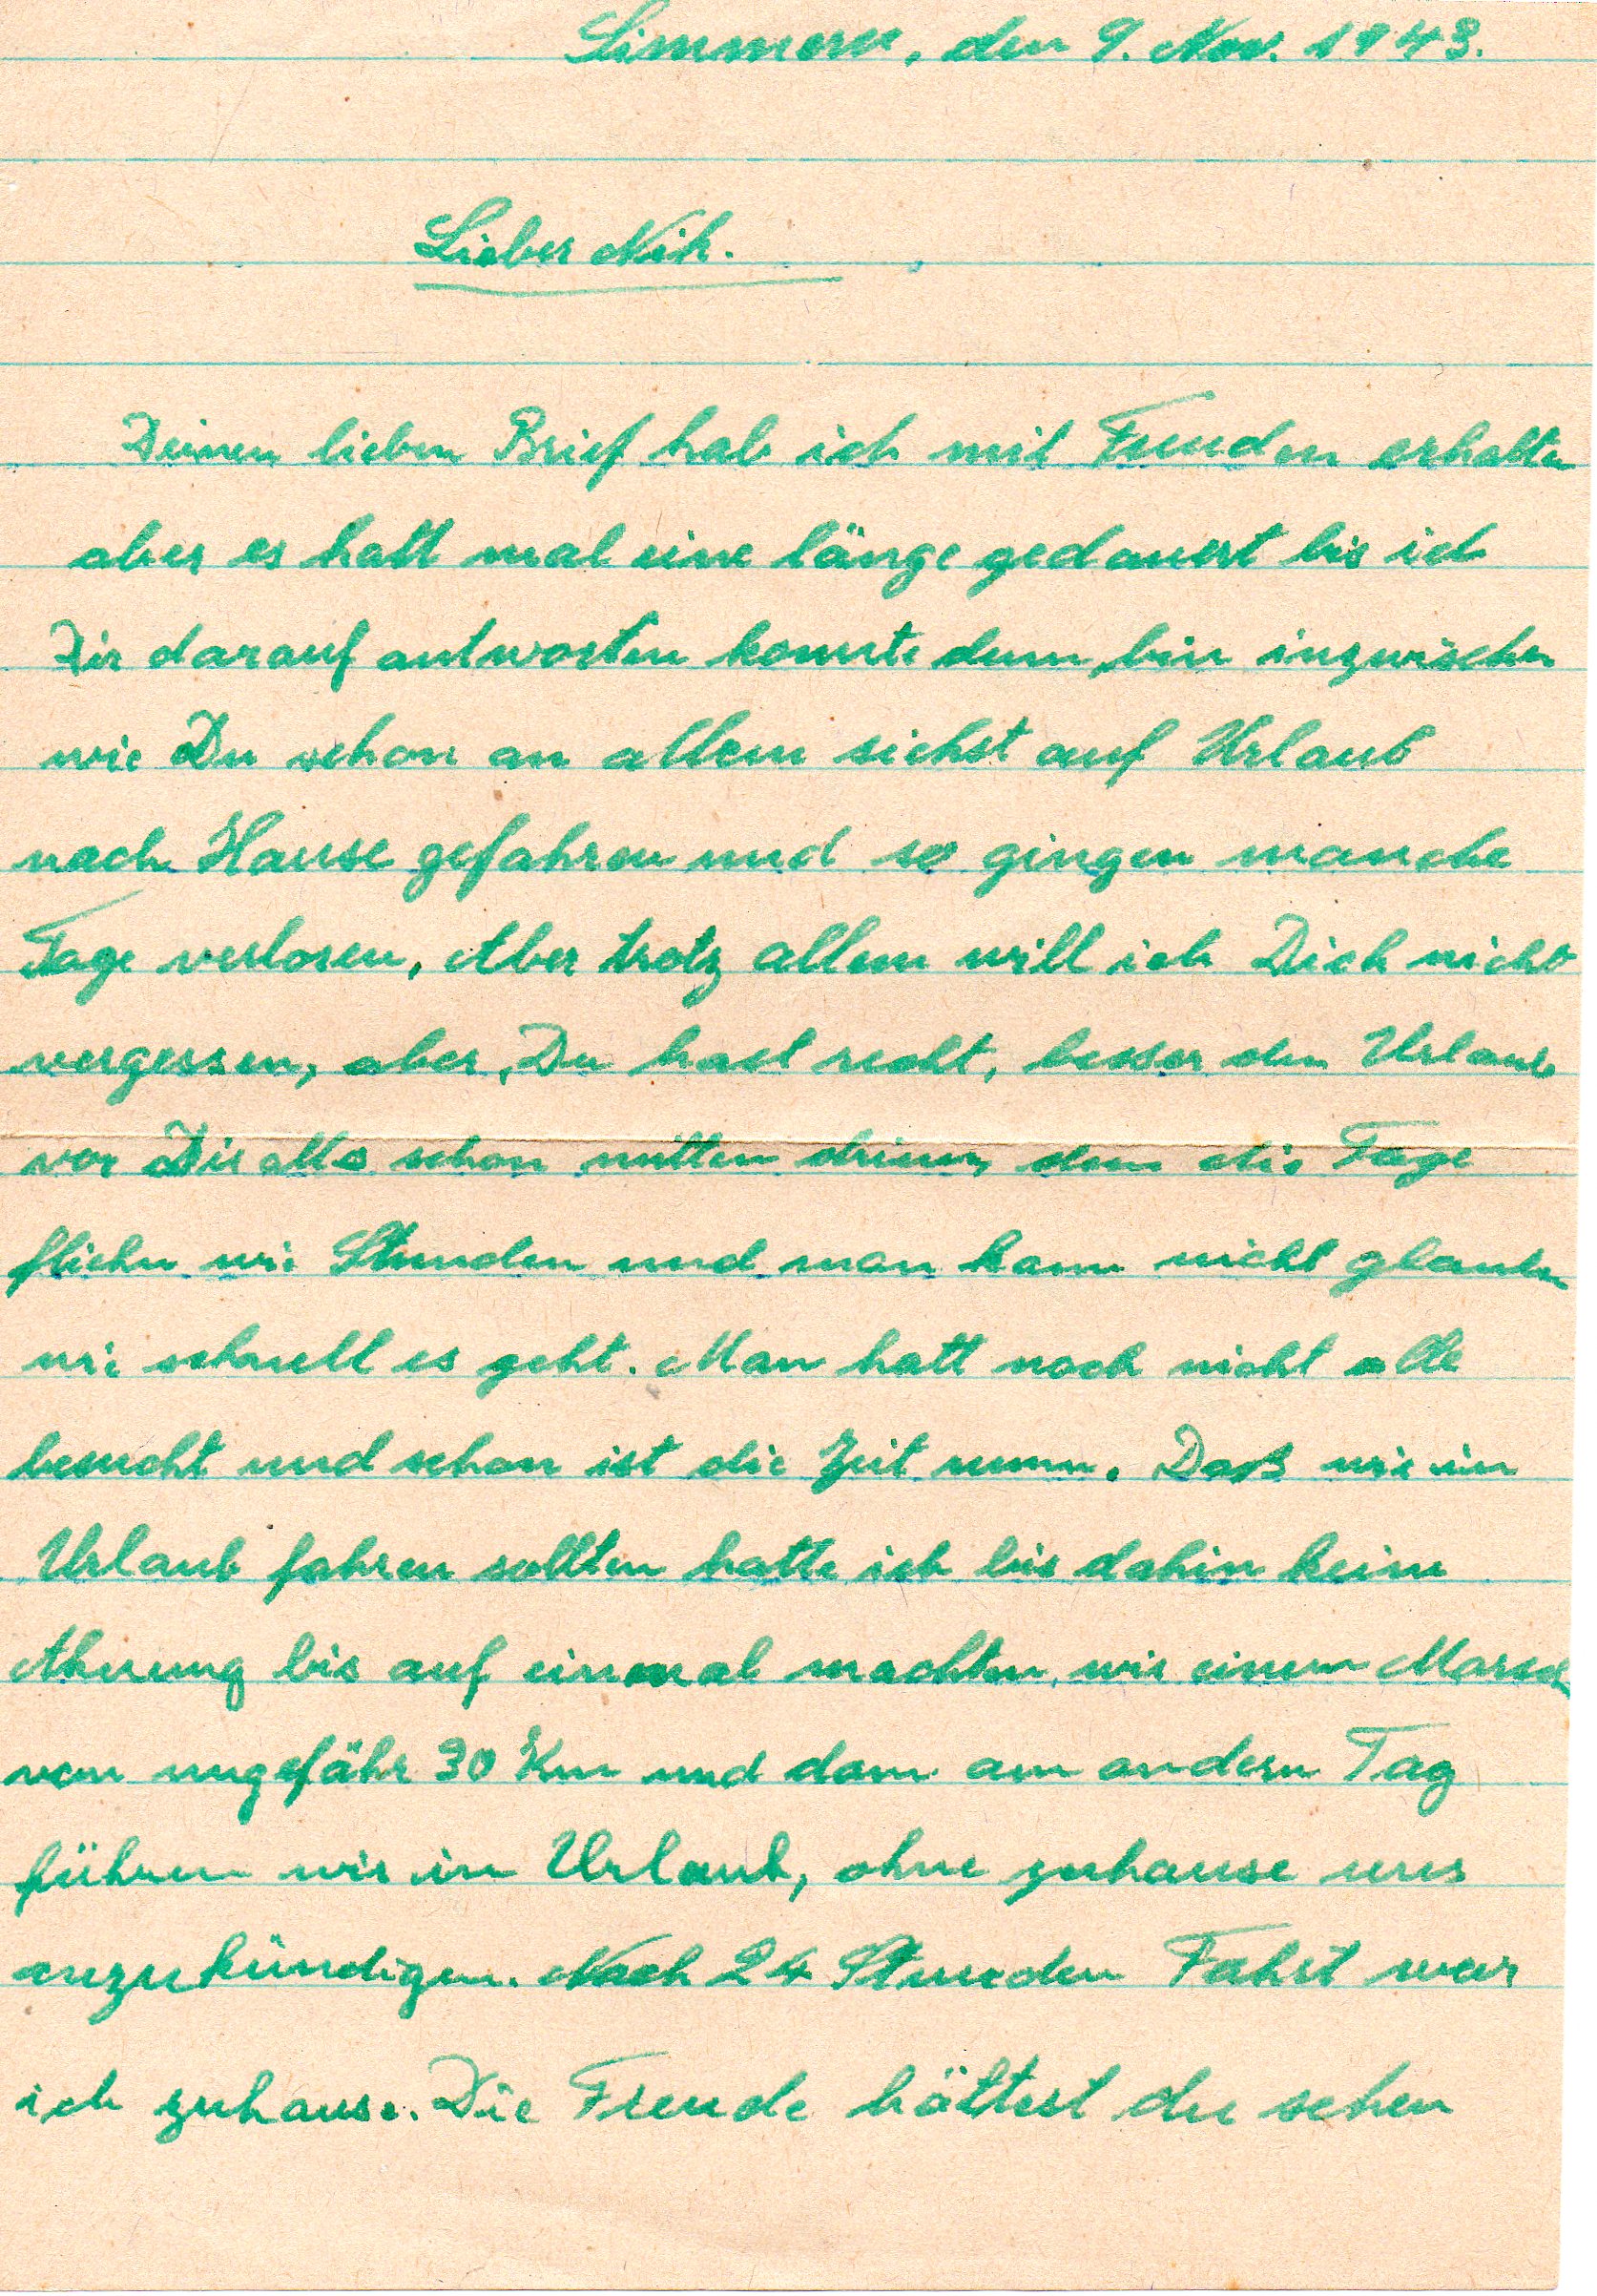 Simmern, den 9. Nov. 1943.
Lieber Nik.
Deinen lieben Brief hab ich mit Freuden erhalten
aber es hatt mal eine länge gedauert bis ich
Dir darauf antworten konnte denn bin inzwischen
wie Du schon an allem siehst auf Urlaub
nach Hause gefahren und so gingen manche
Tage verloren, Aber trotz allem will ich Dich nicht
vergessen, aber, Du hast recht, besser den Urlaub
vor Dir als schon mitten drinn, denn die Tage
fliehn wie Stunden und man kann nicht glauben
wie schnell es geht. Man hatt noch nicht alle
besucht und schon ist die Zeit rumm. Daß wir in
Urlaub fahren sollten hatte ich bis dahin keine
Ahnung bis auf einmal machten wir einen Marsch
von ungefähr 30 Km und dann am andern Tag
führen wir in Urlaub, ohne zuhause uns
anzukündigen. Nach 24 Stunden Fahrt war
ich zuhause. Die Freude hättest du sehen